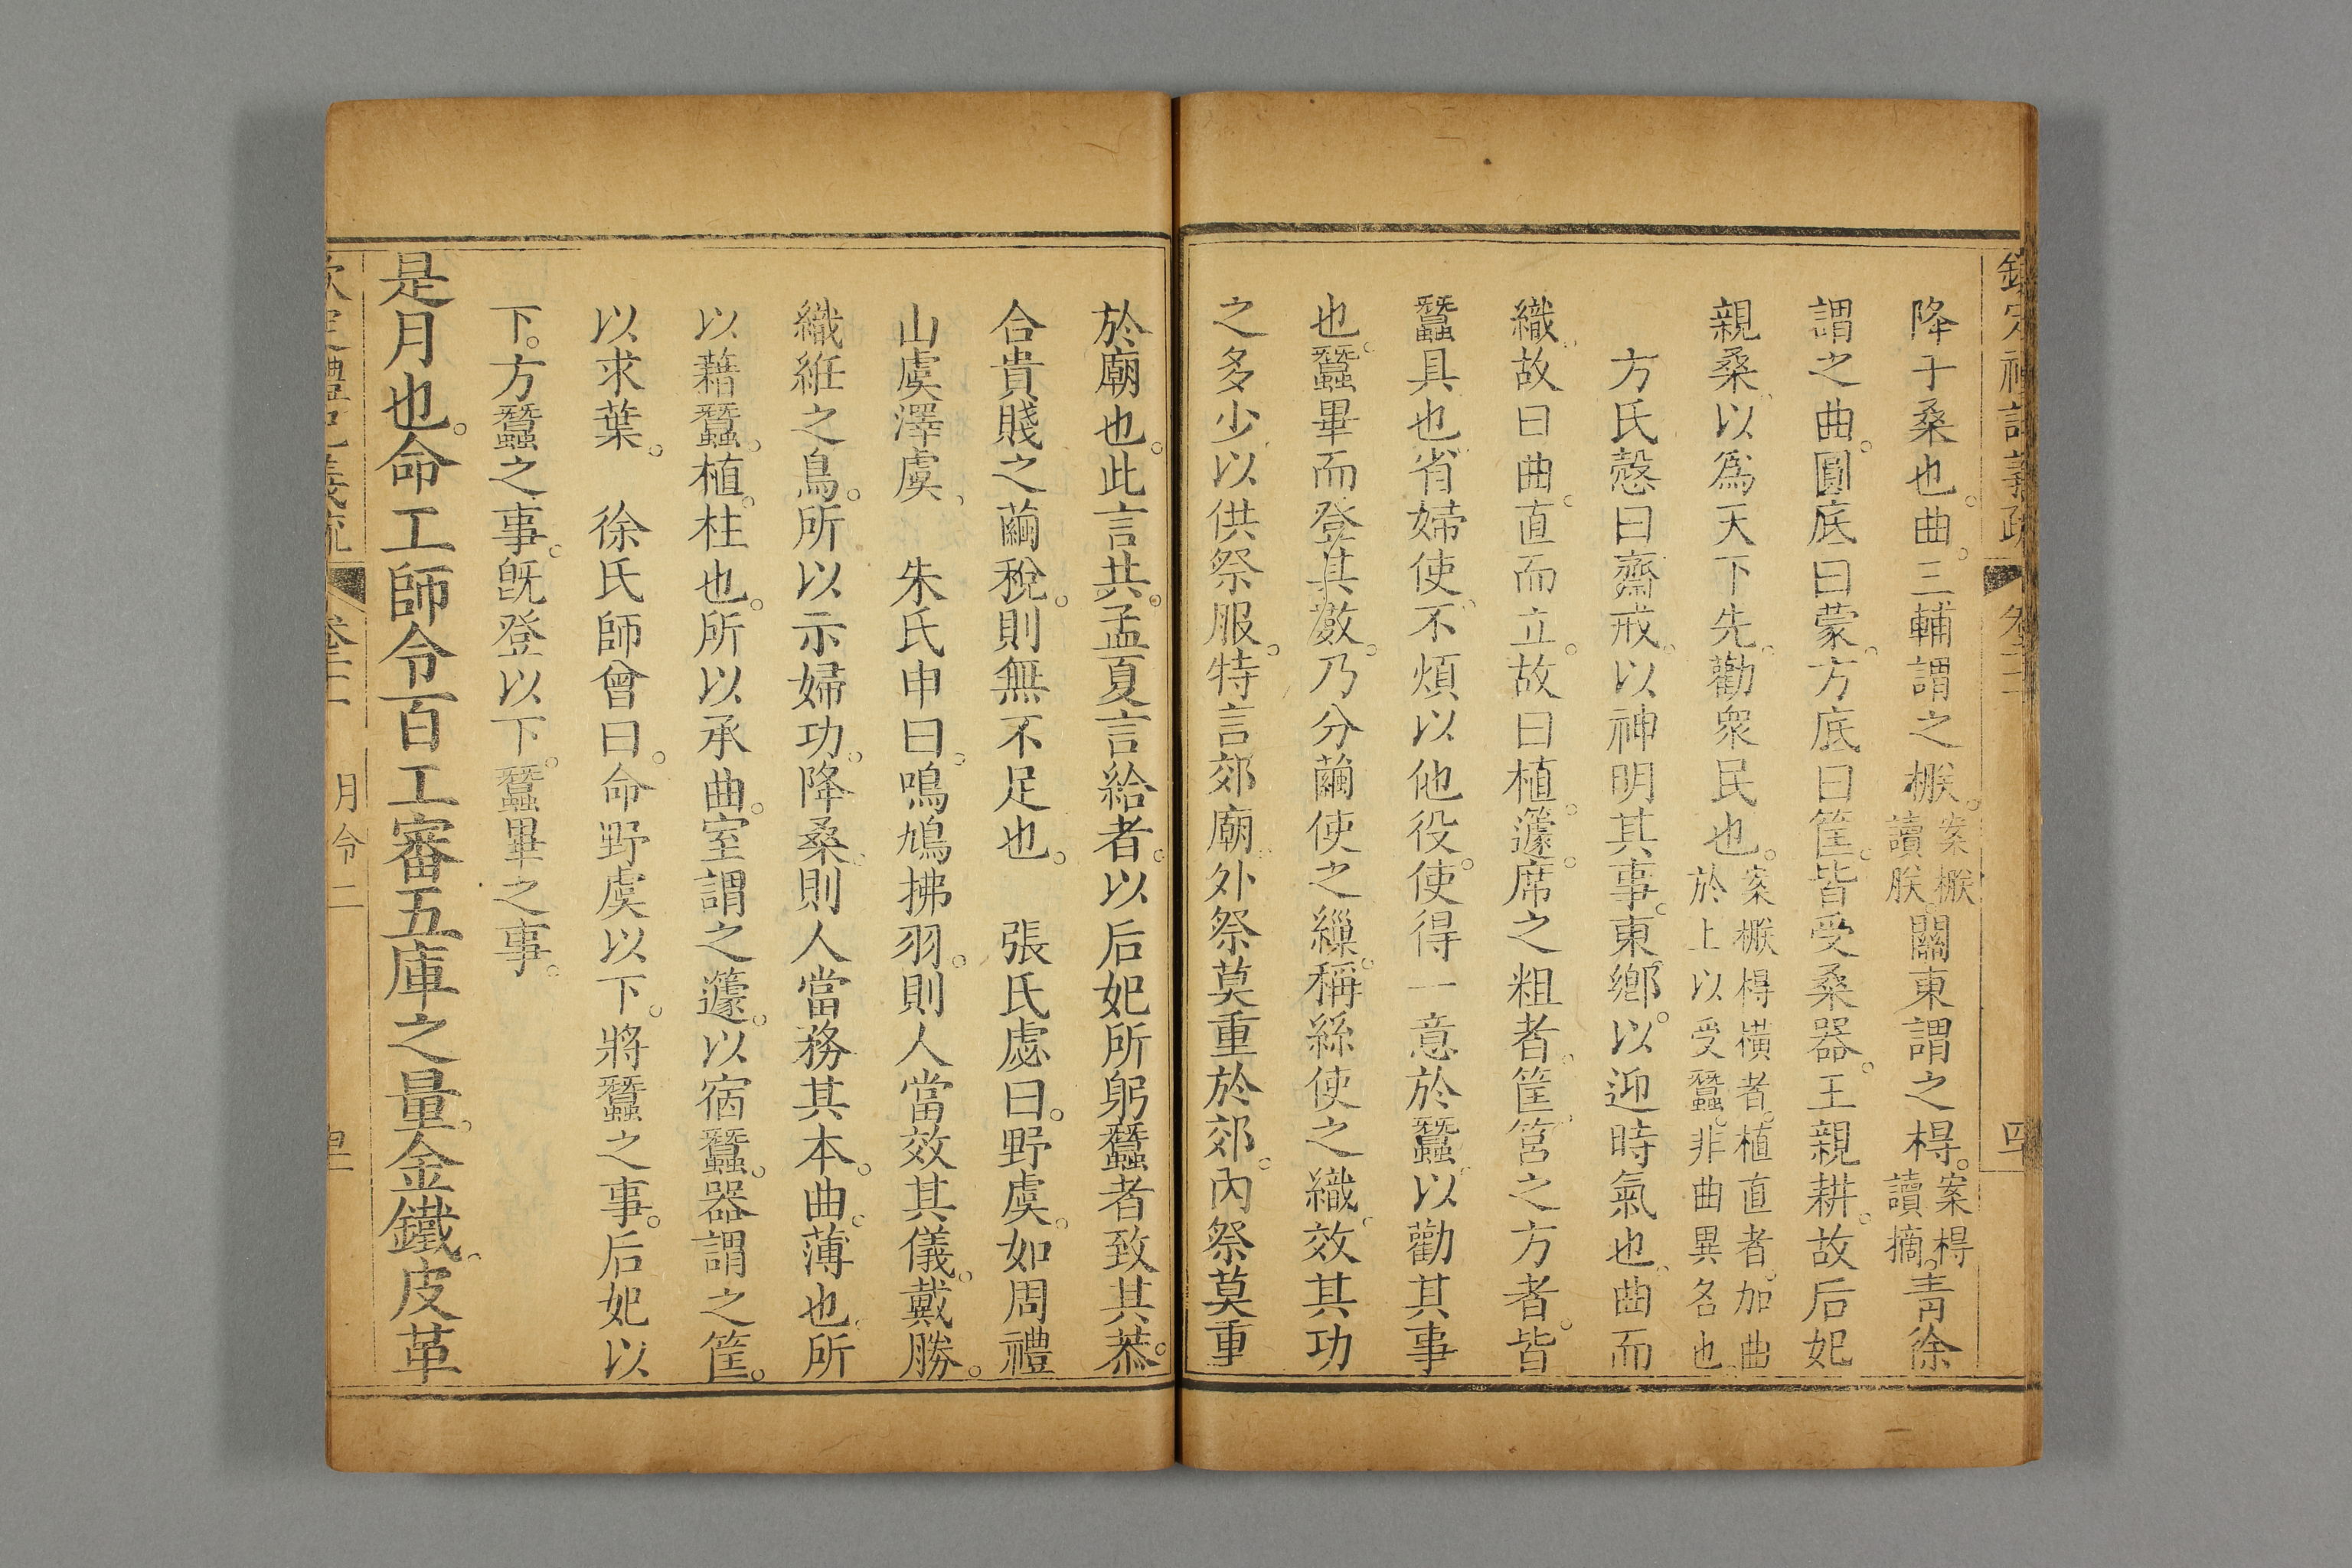 降于桑也。曲。三輔謂之㮞。案㮞讀朕關東謂之㭙。案㭙讀摘。青徐
謂之曲。圓底曰蒙。方底曰筐。皆受桑器。王親耕。故后妃
親桑。以爲天下先。勸衆民也。案㮞㭙橫者。植直者。加曲於上以受蠶。非曲異名也
方氏慤曰齋戒。以神明其事。東鄉。以迎時氣也。曲而
織。故曰曲。直而立。故曰植。籧。席之粗者。筐。筥之方者。皆
蠶具也。省婦使。不煩以他役使。得一意於蠶。以勸其事
也。蠶畢而登其數。乃分繭使之繅。稱絲使之織。效其功
之多少。以供祭服。特言郊廟。外祭莫重於郊。內祭莫重
於廟也。此言共。孟夏言給者。以后妃所躬蠶者致其恭。
合貴賤之繭稅。則無不足也。 張氏處曰。野虞。如周禮
山虞澤虞。 朱氏申曰。鳴鳩拂羽。則人當效其儀。戴勝。
織絍之鳥。所以示婦功。降桑。則人當務其本。曲。薄也。所
以藉蠶。植。柱也。所以承曲。室謂之籧。以宿蠶。器謂之筐。
以求葉。 徐氏師曾曰。命野虞以下。將蠶之事。后妃以
下。方蠶之事。旣登以下。蠶畢之事。
是月也。命工師令百工審五庫之量。金鐵。皮革
月令二